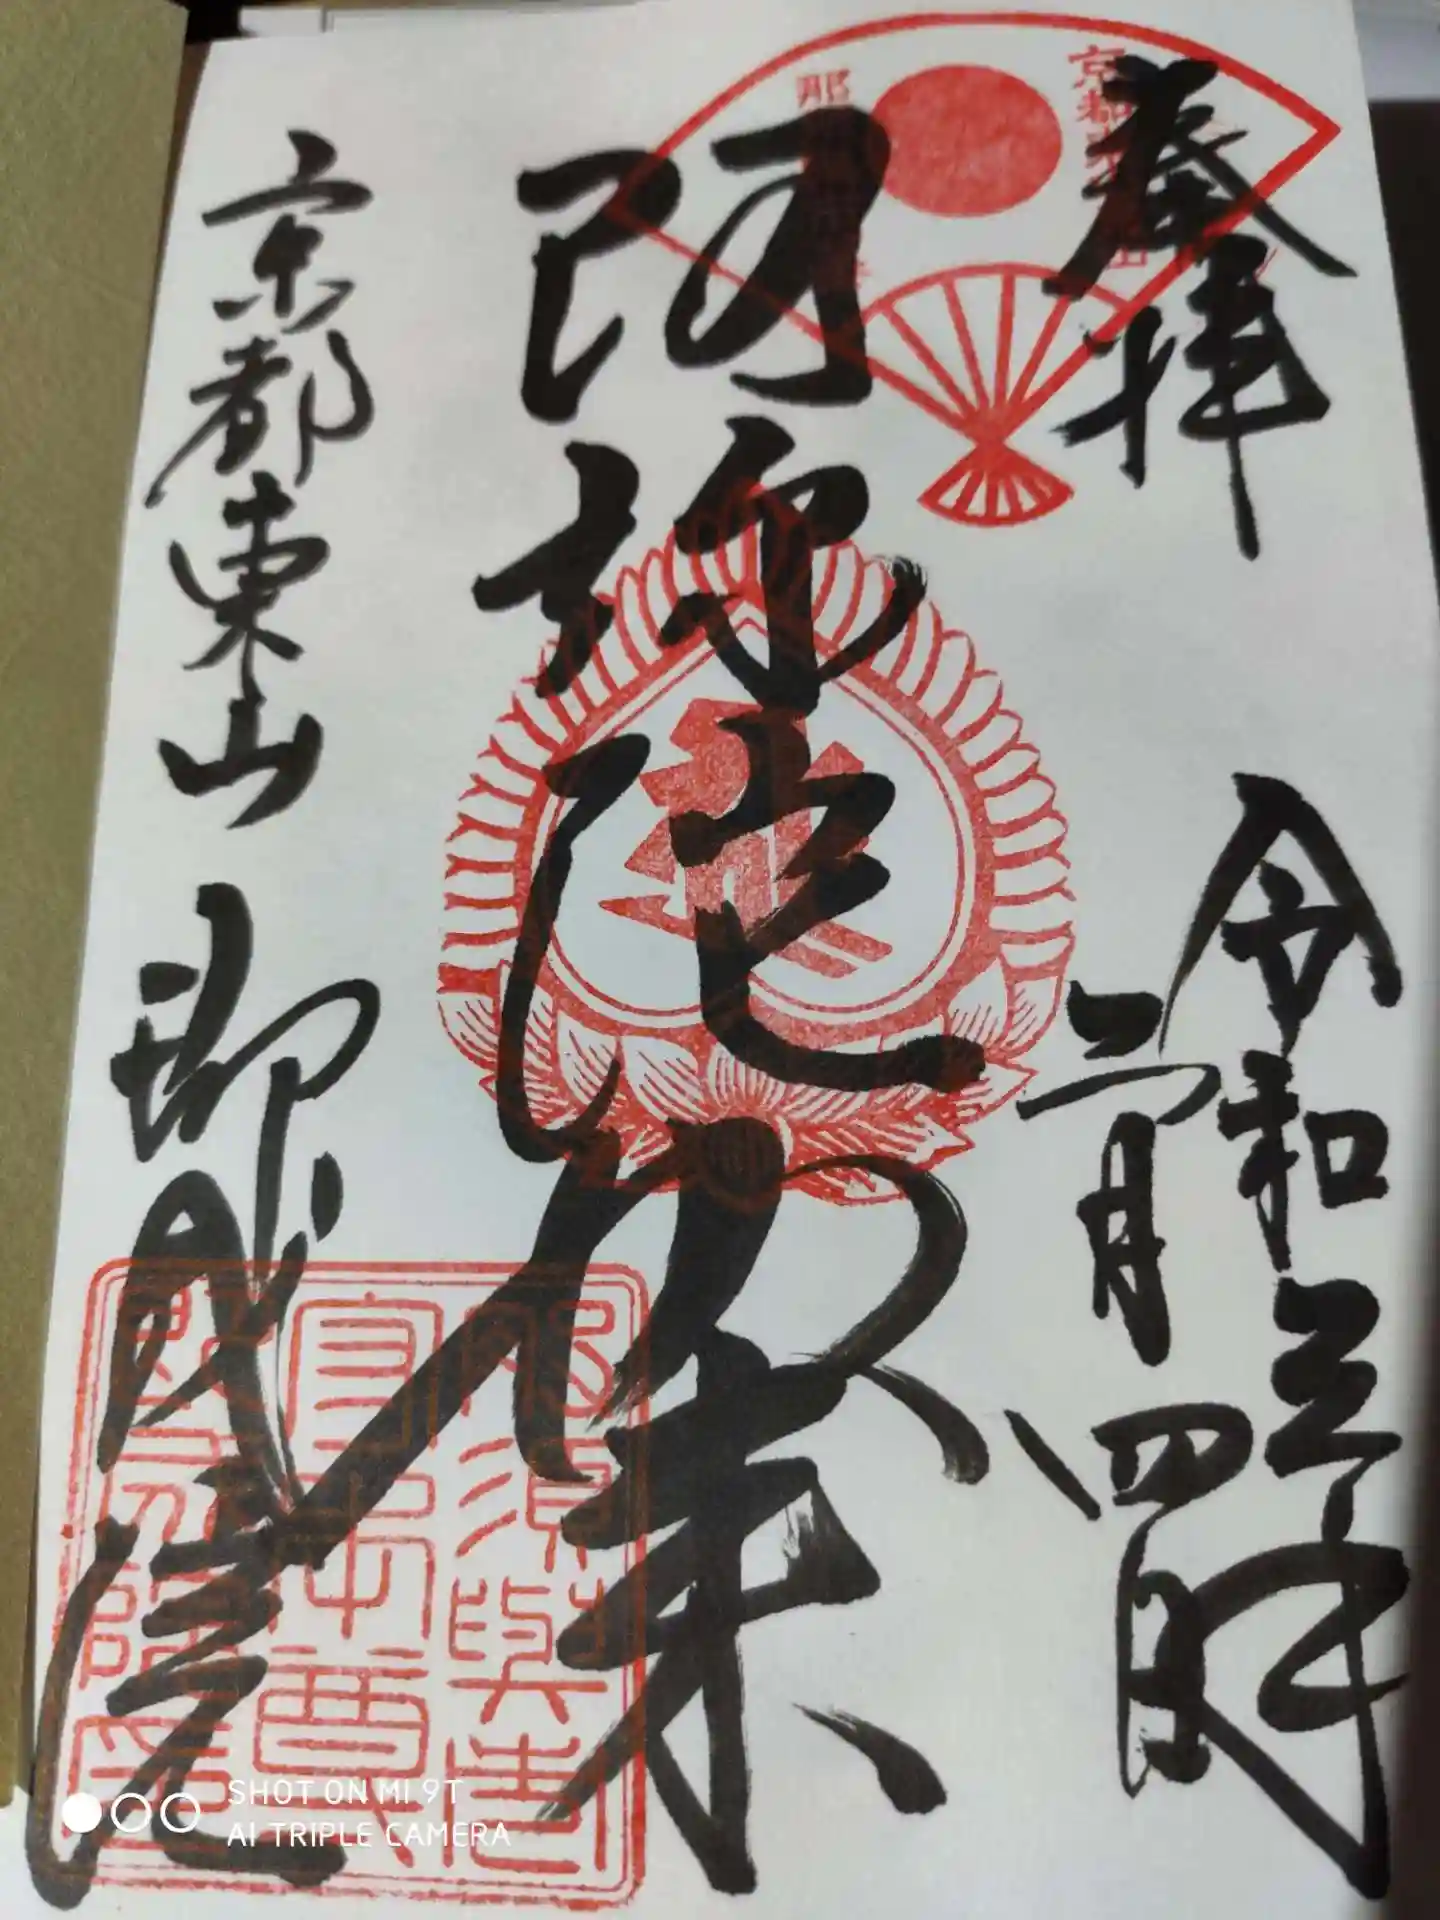 奉拝
令和五年
二月四日
阿弥陀如来
京都東山 即成院
SHOT ON MI 9T
AI TRIPLE CAMERA